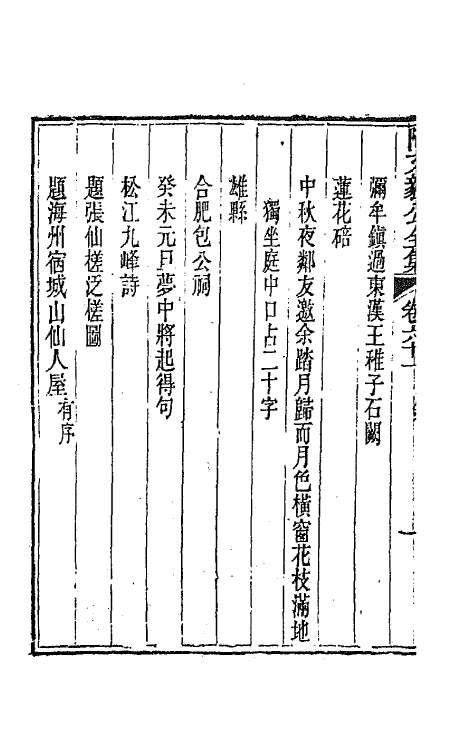 文毅公全集 卷六十一
彌牟鎮過東漢王稚子石闕
蓮花碚
中秋夜鄰友邀余踏月歸而月色橫窗花枝滿地
獨坐庭中口占二十字
雄縣
合肥包公祠
癸未元旦夢中將起得句
松江九峰詩
題張仙槎泛槎圖
題海州宿城山仙人屋 有序